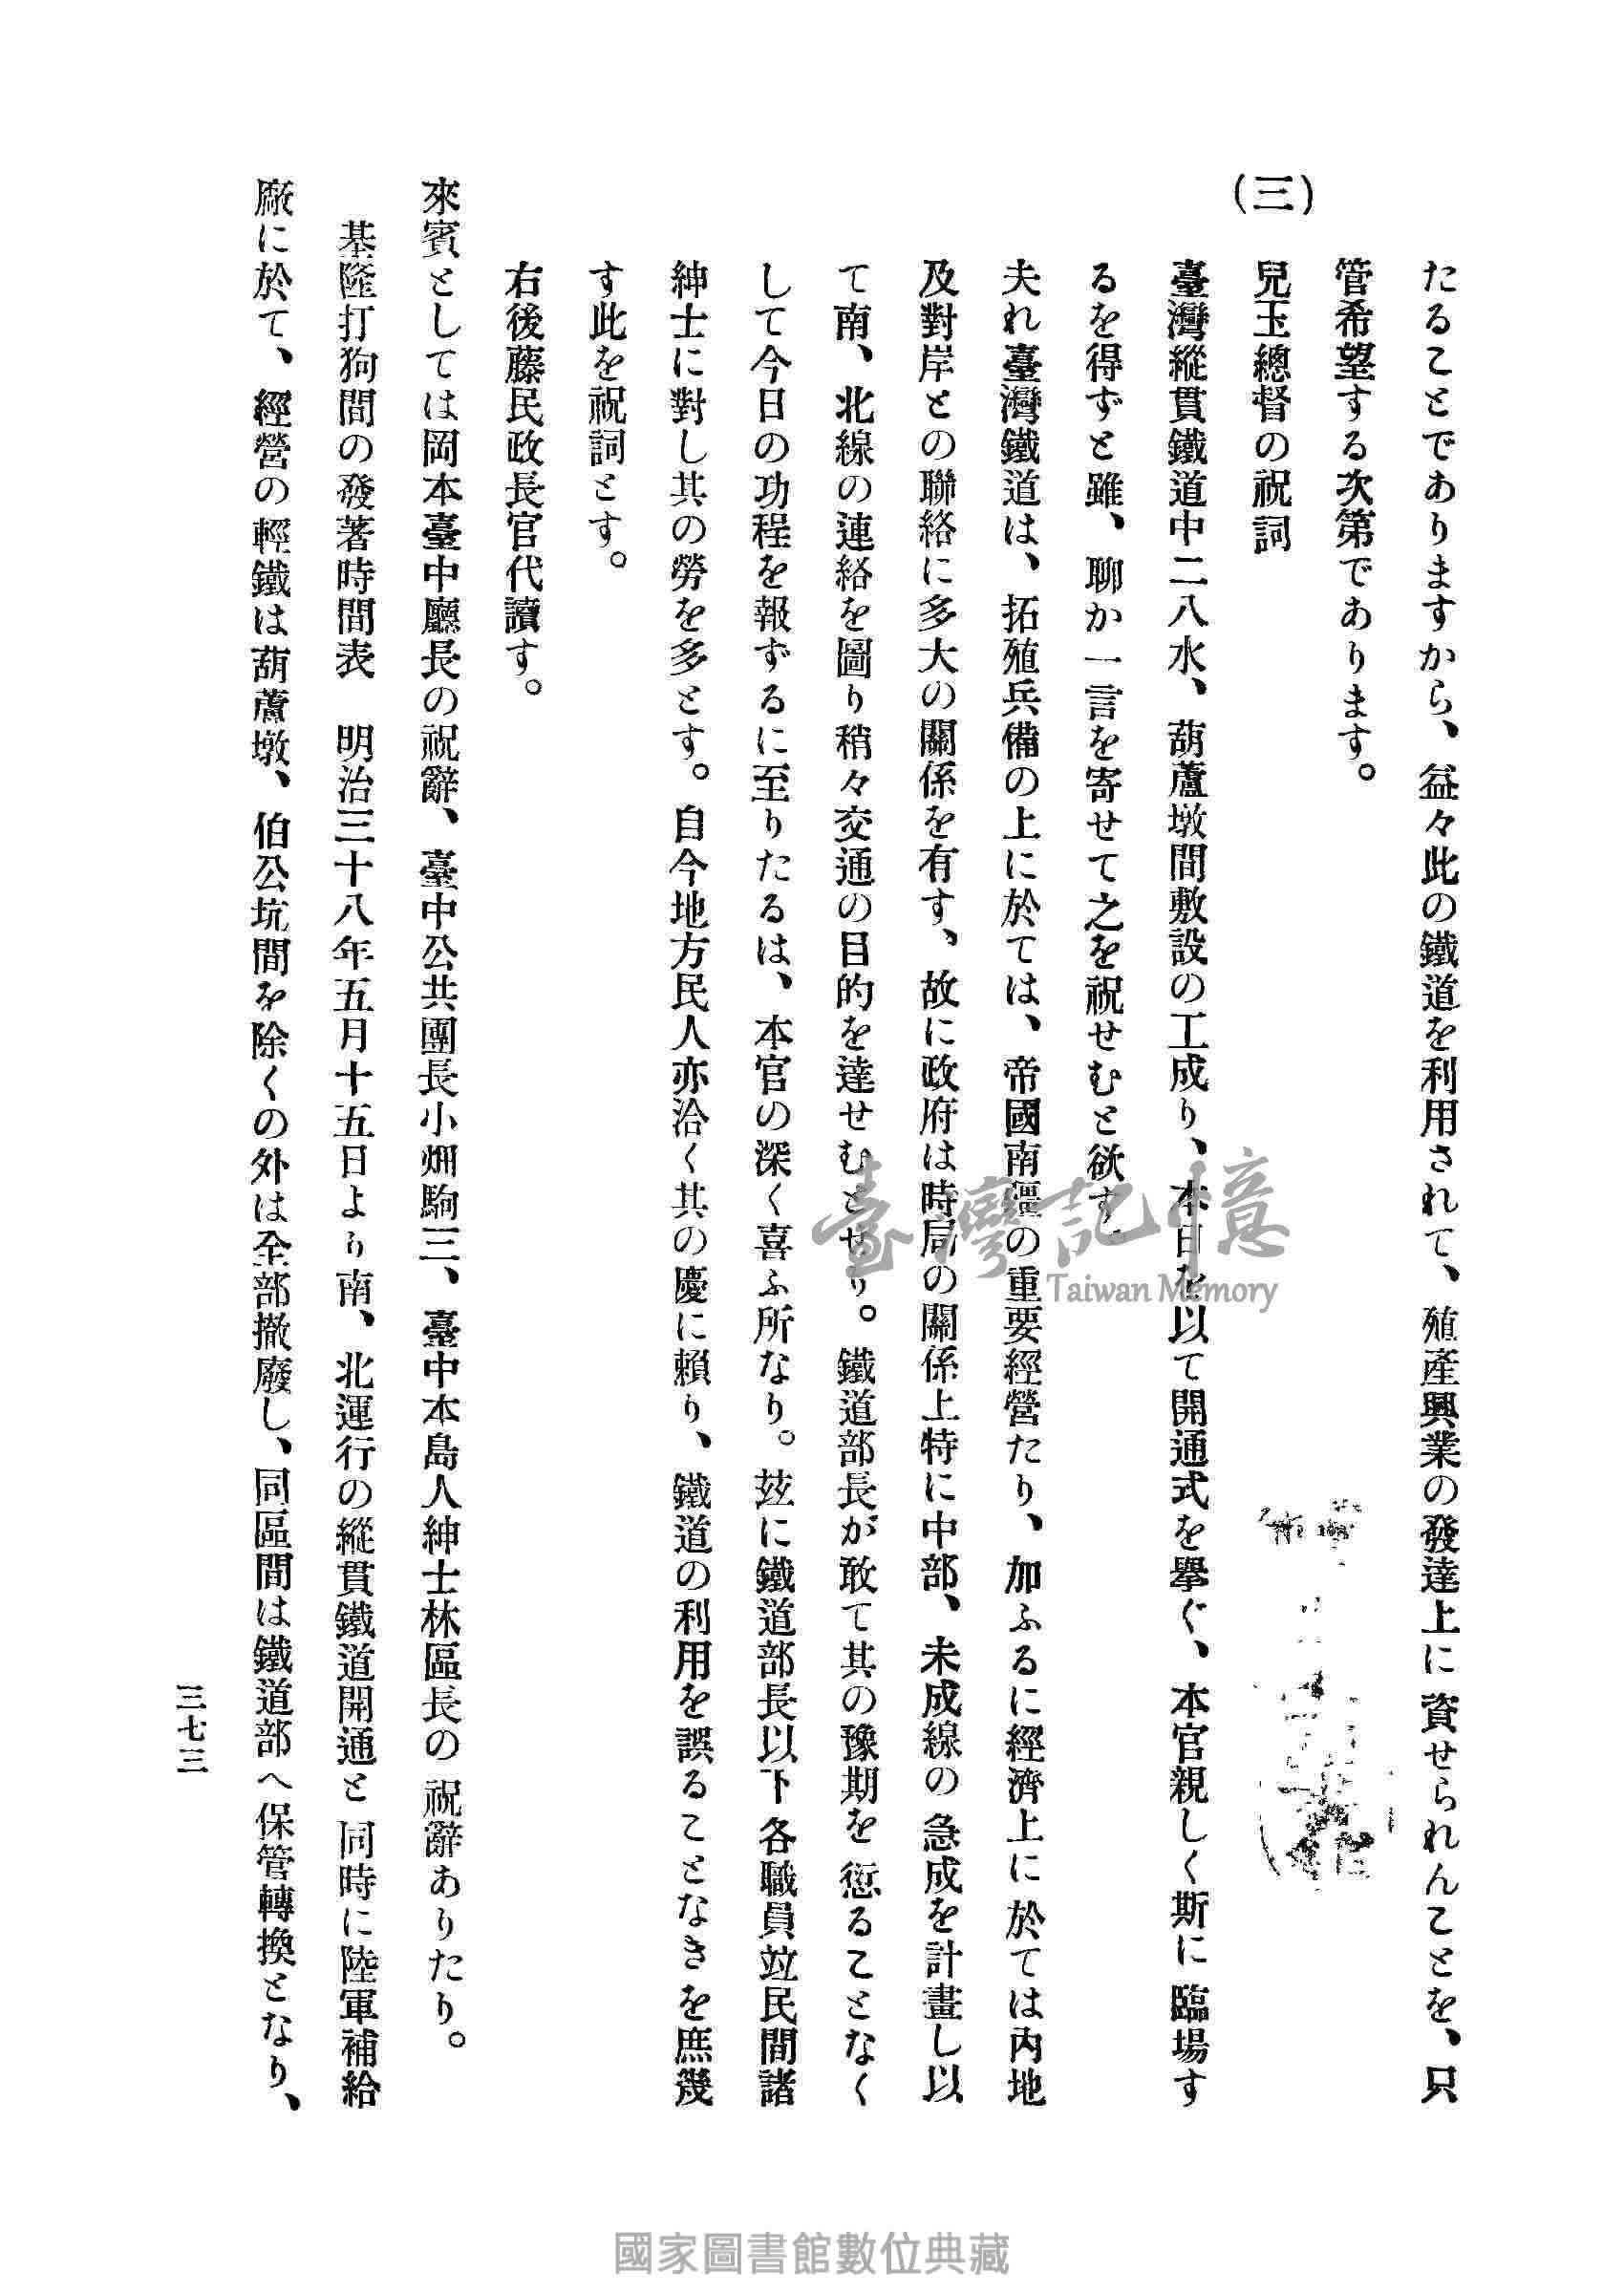 たることでありますから、益々此の鐵道を利用されて、殖産興業の發達上に資せられんことを、只
管希望する次第であります。
(三)　兒玉總督の祝詞
臺灣縱貫鐵道中二八水、葫蘆墩間敷設の工成り、本日を以て開通式を擧ぐ、本官親しく斯に臨場す
るを得ずと雖、聊か一言を寄せて之を祝せむと欲す。
夫れ臺灣鐵道は、拓殖兵備の上に於ては、帝國南疆の重要經營たり、加ふるに經濟上に於ては內地
及對岸との聯絡に多大の關係を有す、故に政府は時局の關係上特に中部、未成線の急成を計畫し以
て南、北線の連絡を圖り稍々交通の目的を達せむとせり。鐵道部長が敢て其の豫期を愆ることなく
して今日の功程を報ずるに至りたるは、本官の深く喜ふ所なり。玆に鐵道部長以下各職員竝民間諸
紳士に對し其の勞を多とす。自今地方民人亦洽く其の慶に賴り、鐵道の利用を誤ることなきを庶幾
す此を祝詞とす。
右後藤民政長官代讀す。
來賓としては岡本臺中廳長の祝辭、臺中公共團長小畑駒三、臺中本島人紳士林區長の祝辭ありたり。
基隆打狗間の發著時間表　明治三十八年五月十五日より南、北運行の縱貫鐵道開通と同時に陸軍補給
廠に於て、經營の輕鐵は葫蘆墩、伯公坑間を除くの外は全部撤廢し、同區間は鐵道部へ保管轉換となり、
三七三
臺灣記憶
Taiwan Memory
國家圖書館數位典藏